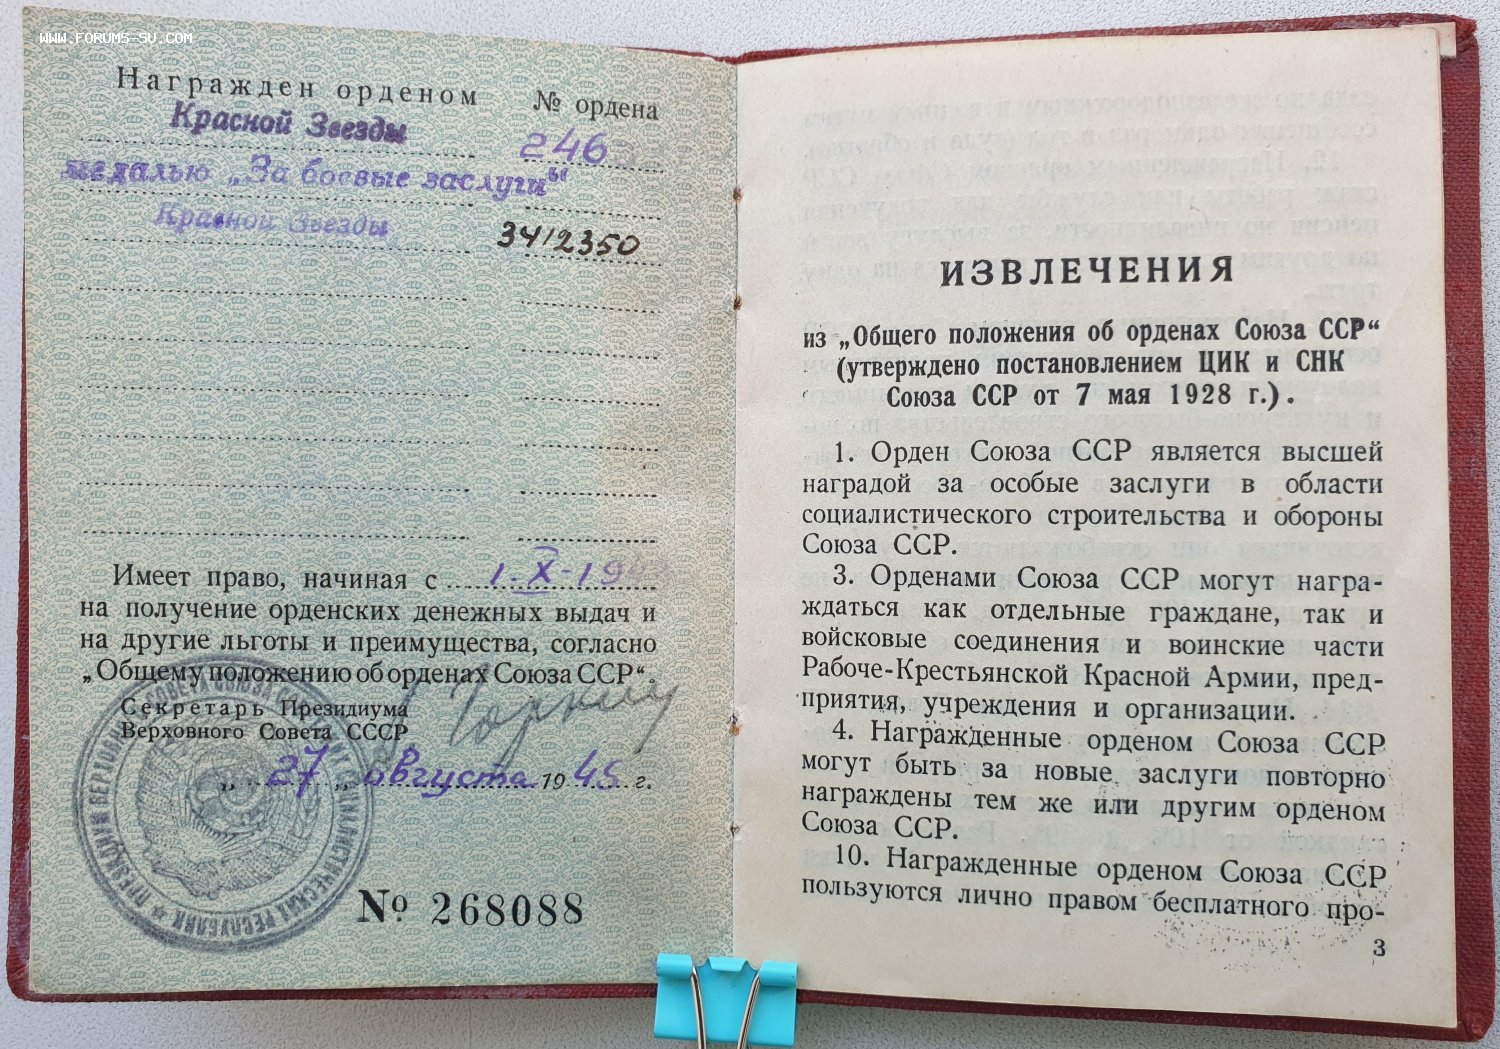 WWW.FORUMS-SU.COM
Награжден орденом № ордена
Красной Звезды 246
медалью „За боевые заслуги“
Красной Звезды 3412350
Имеет право, начиная с 1-X-194
на получение орденских денежных выдач и
на другие льготы и преимущества, согласно
„Общему положению об орденах Союза ССР“.
Секретарь Президиума
Верховного Совета СССР
Горкин
„27“ августа 1945 г.
№ 268088
ИЗВЛЕЧЕНИЯ
из „Общего положения об орденах Союза ССР“
(утверждено постановлением ЦИК и СНК
Союза ССР от 7 мая 1928 г.).
1. Орден Союза ССР является высшей
наградой за особые заслуги в области
социалистического строительства и обороны
Союза ССР.
3. Орденами Союза ССР могут награ-
ждаться как отдельные граждане, так и
войсковые соединения и воинские части
Рабоче-Крестьянской Красной Армии, пред-
приятия, учреждения и организации.
4. Награжденные орденом Союза ССР
могут быть за новые заслуги повторно
награждены тем же или другим орденом
Союза ССР.
10. Награжденные орденом Союза ССР
пользуются лично правом бесплатного про-
3